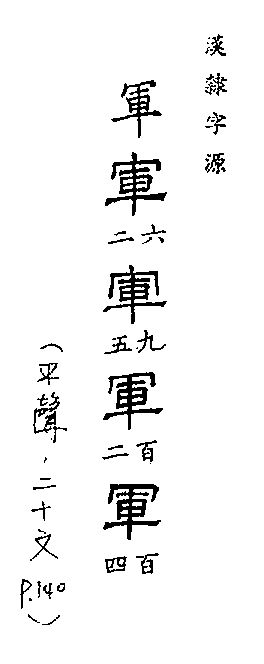 漢隸字源
軍軍六二軍九五軍百二軍百四
(平聲，二十文 P.140)